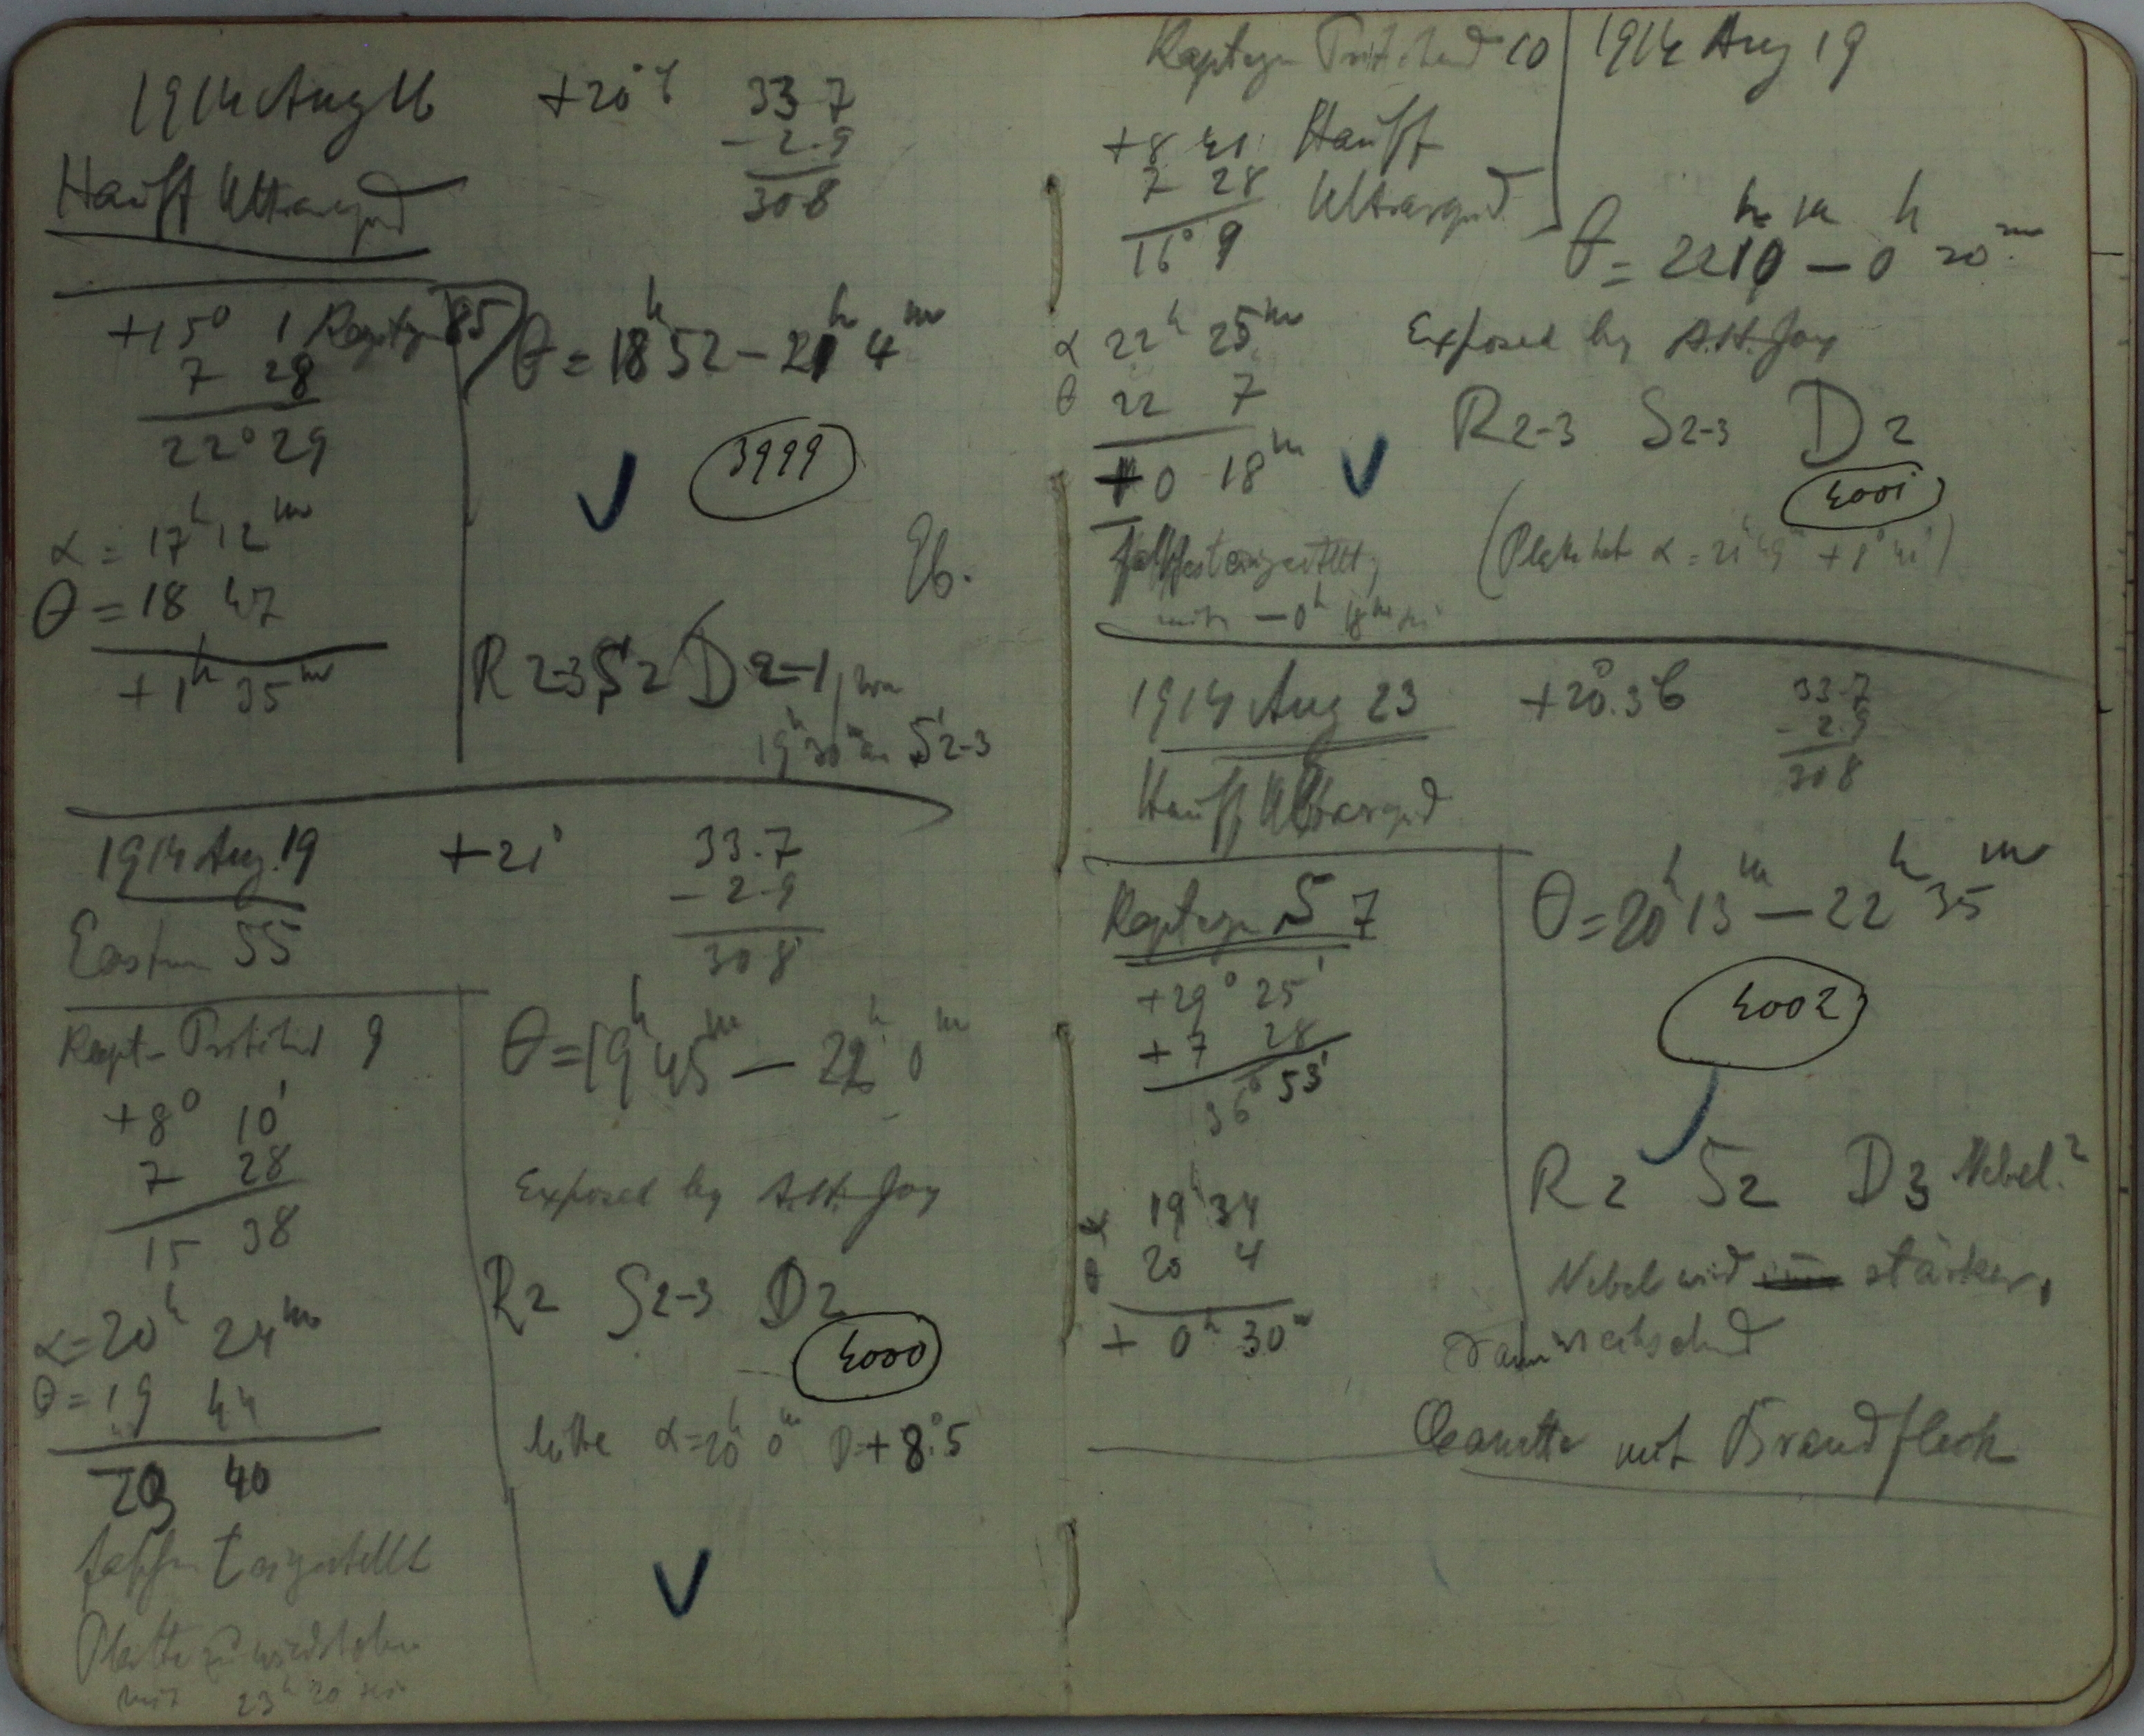 1914 Aug 16 +20° C 33.7
- 2.9
30.8
Hauff Ultrarapid
+15° 1 Kapteyn 85
7 28
22° 29
α = 17h 12m
θ = 18 47
+1h 35m
θ = 18h 52 - 21h 4m
3999
Eb.
R 2-3 S 2 D 2-1, von
19h 30m an S 2-3
1914 Aug. 19 +21° 33.7
- 2.9
30.8
Eastman 55
Kapt- Pritchard 9
+8° 10'
7 28
15 38
α = 20h 24m
θ = 19 44
40
falsch eingestellt
Platte zu wiederholen
mit 23h 20
θ = 19h 45m - 22h 0m
Exposed by A.H. Joy
R2 S2-3 D2
4000
Mitte α = 20h 0m D + 8°.5
Kapteyn Pritchard 10
+8 41 Hauff
7 28 Ultrarapid
16° 9
α 22h 25m
θ 22 7
0 18m
falsch eingestellt,
mit - 0h 18m
1914 Aug 19
θ = 22h 10m - 0h 20m
Exposed by A.H. Joy
R2-3 S2-3 D2
4001
(Platte hat α = 21h 49m + 1° 41')
1914 Aug 23 +20°.3 C 33.7
- 2.9
30.8
Hauff Ultrarapid
Kapteyn S 7
+29° 25'
+ 7 28
36° 53'
α 19h 34
θ 20 4
+ 0h 30m
θ = 20h 13m - 22h 35m
4002
R2 S2 D3 Nebel?
Nebel wird stärker,
dann wechselnd
Cassette mit Brandfleck